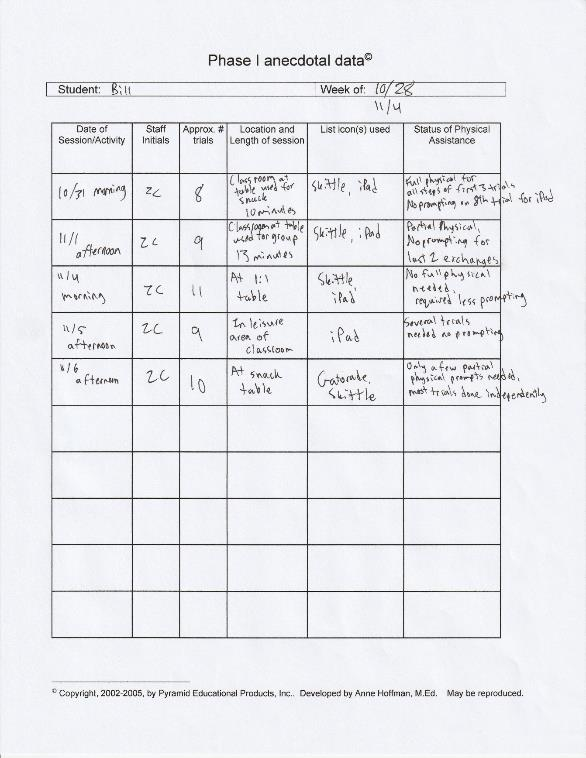 Phase I anecdotal data©
Student: Bill Week of: 10/28
11/4
Date of Session/Activity Staff Initials Approx. # trials Location and Length of session List icon(s) used Status of Physical Assistance
10/31 morning ZC 8 Classroom at table used for snack 10 minutes Skittle, iPad Full physical for all steps of first 3 trials No prompting on 8th trial for iPad
11/1 afternoon ZC 9 Classroom at table used for group 13 minutes Skittle, iPad Partial Physical, No prompting for last 2 exchanges
11/4 morning ZC 11 At 1:1 table Skittle, iPad No full physical needed, required less prompting
11/5 afternoon ZC 9 In leisure area of classroom iPad Several trials needed no prompting
11/6 afternoon ZC 10 At snack table Gatorade, Skittle Only a few partial physical prompts needed, most trials done independently
© Copyright, 2002-2005, by Pyramid Educational Products, Inc.. Developed by Anne Hoffman, M.Ed. May be reproduced.